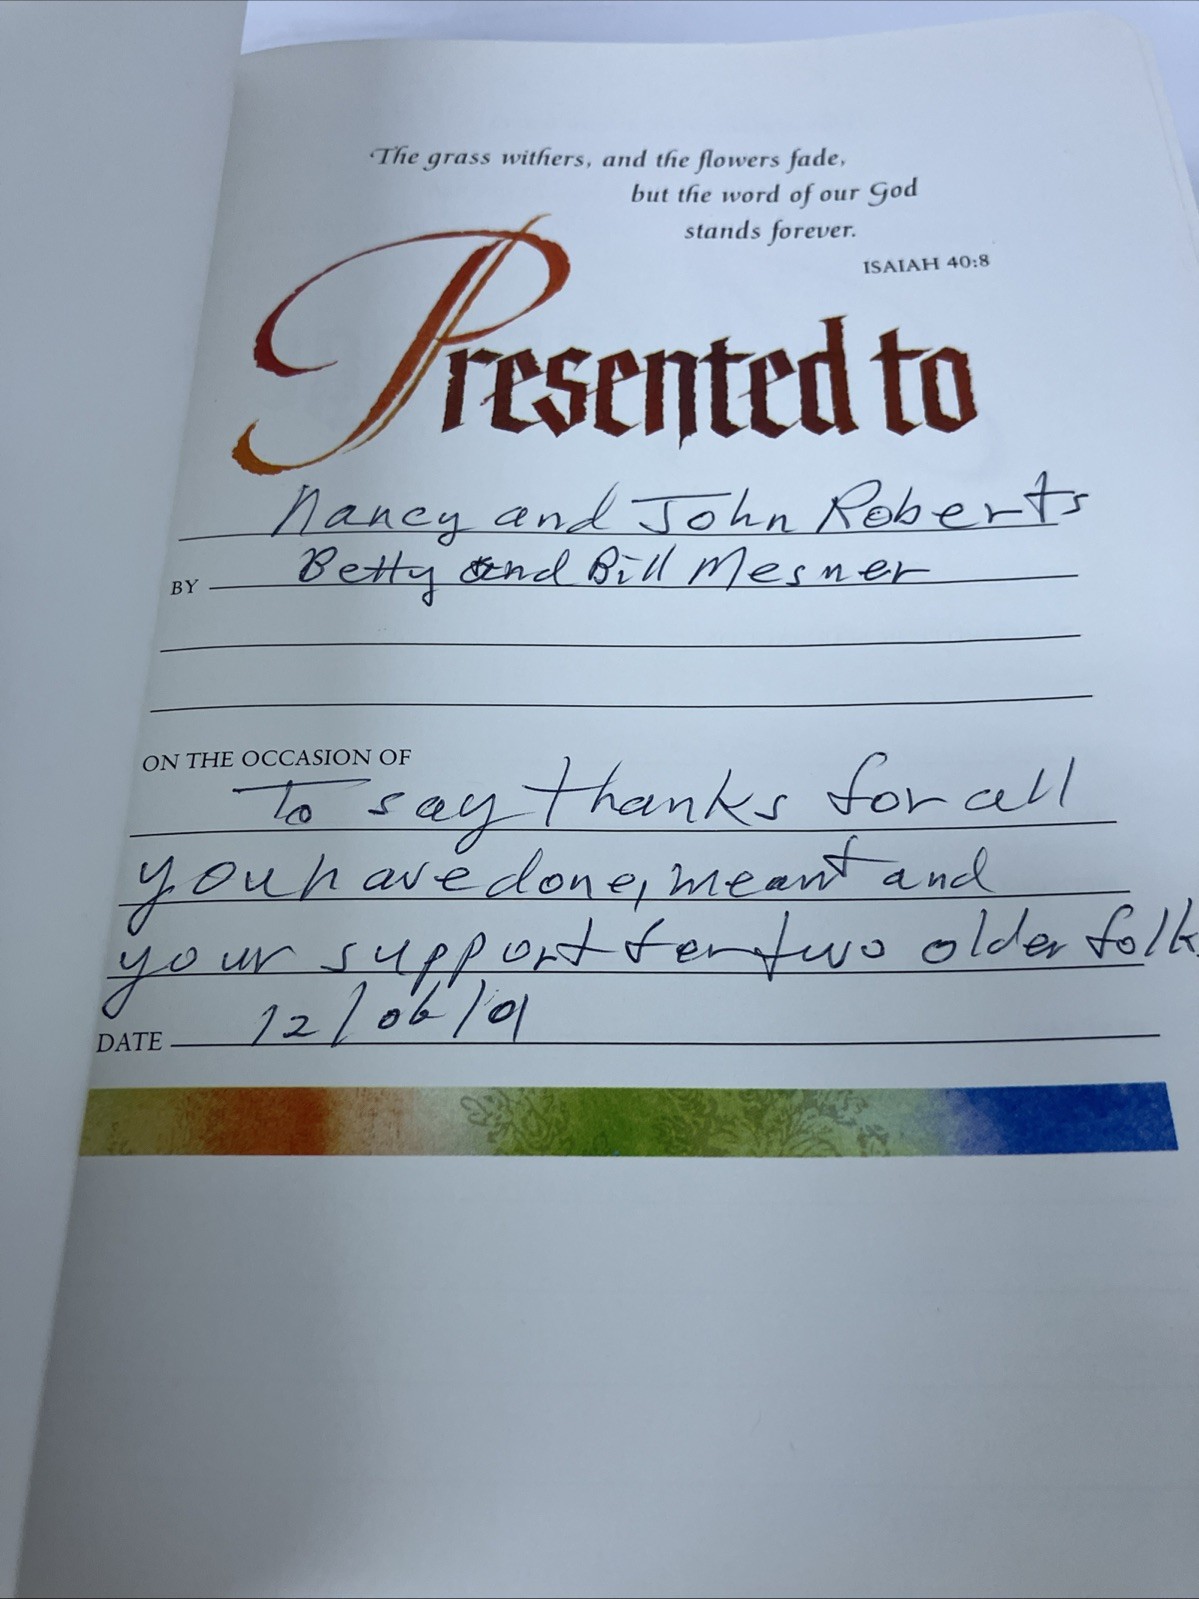 The grass withers, and the flowers fade,
but the word of our God
stands forever.
ISAIAH 40:8
Presented to
Nancy and John Roberts
BY Betty and Bill Mesner
ON THE OCCASION OF
To say thanks for all
you have done, meant and
your support for two older folk
DATE 12/06/01